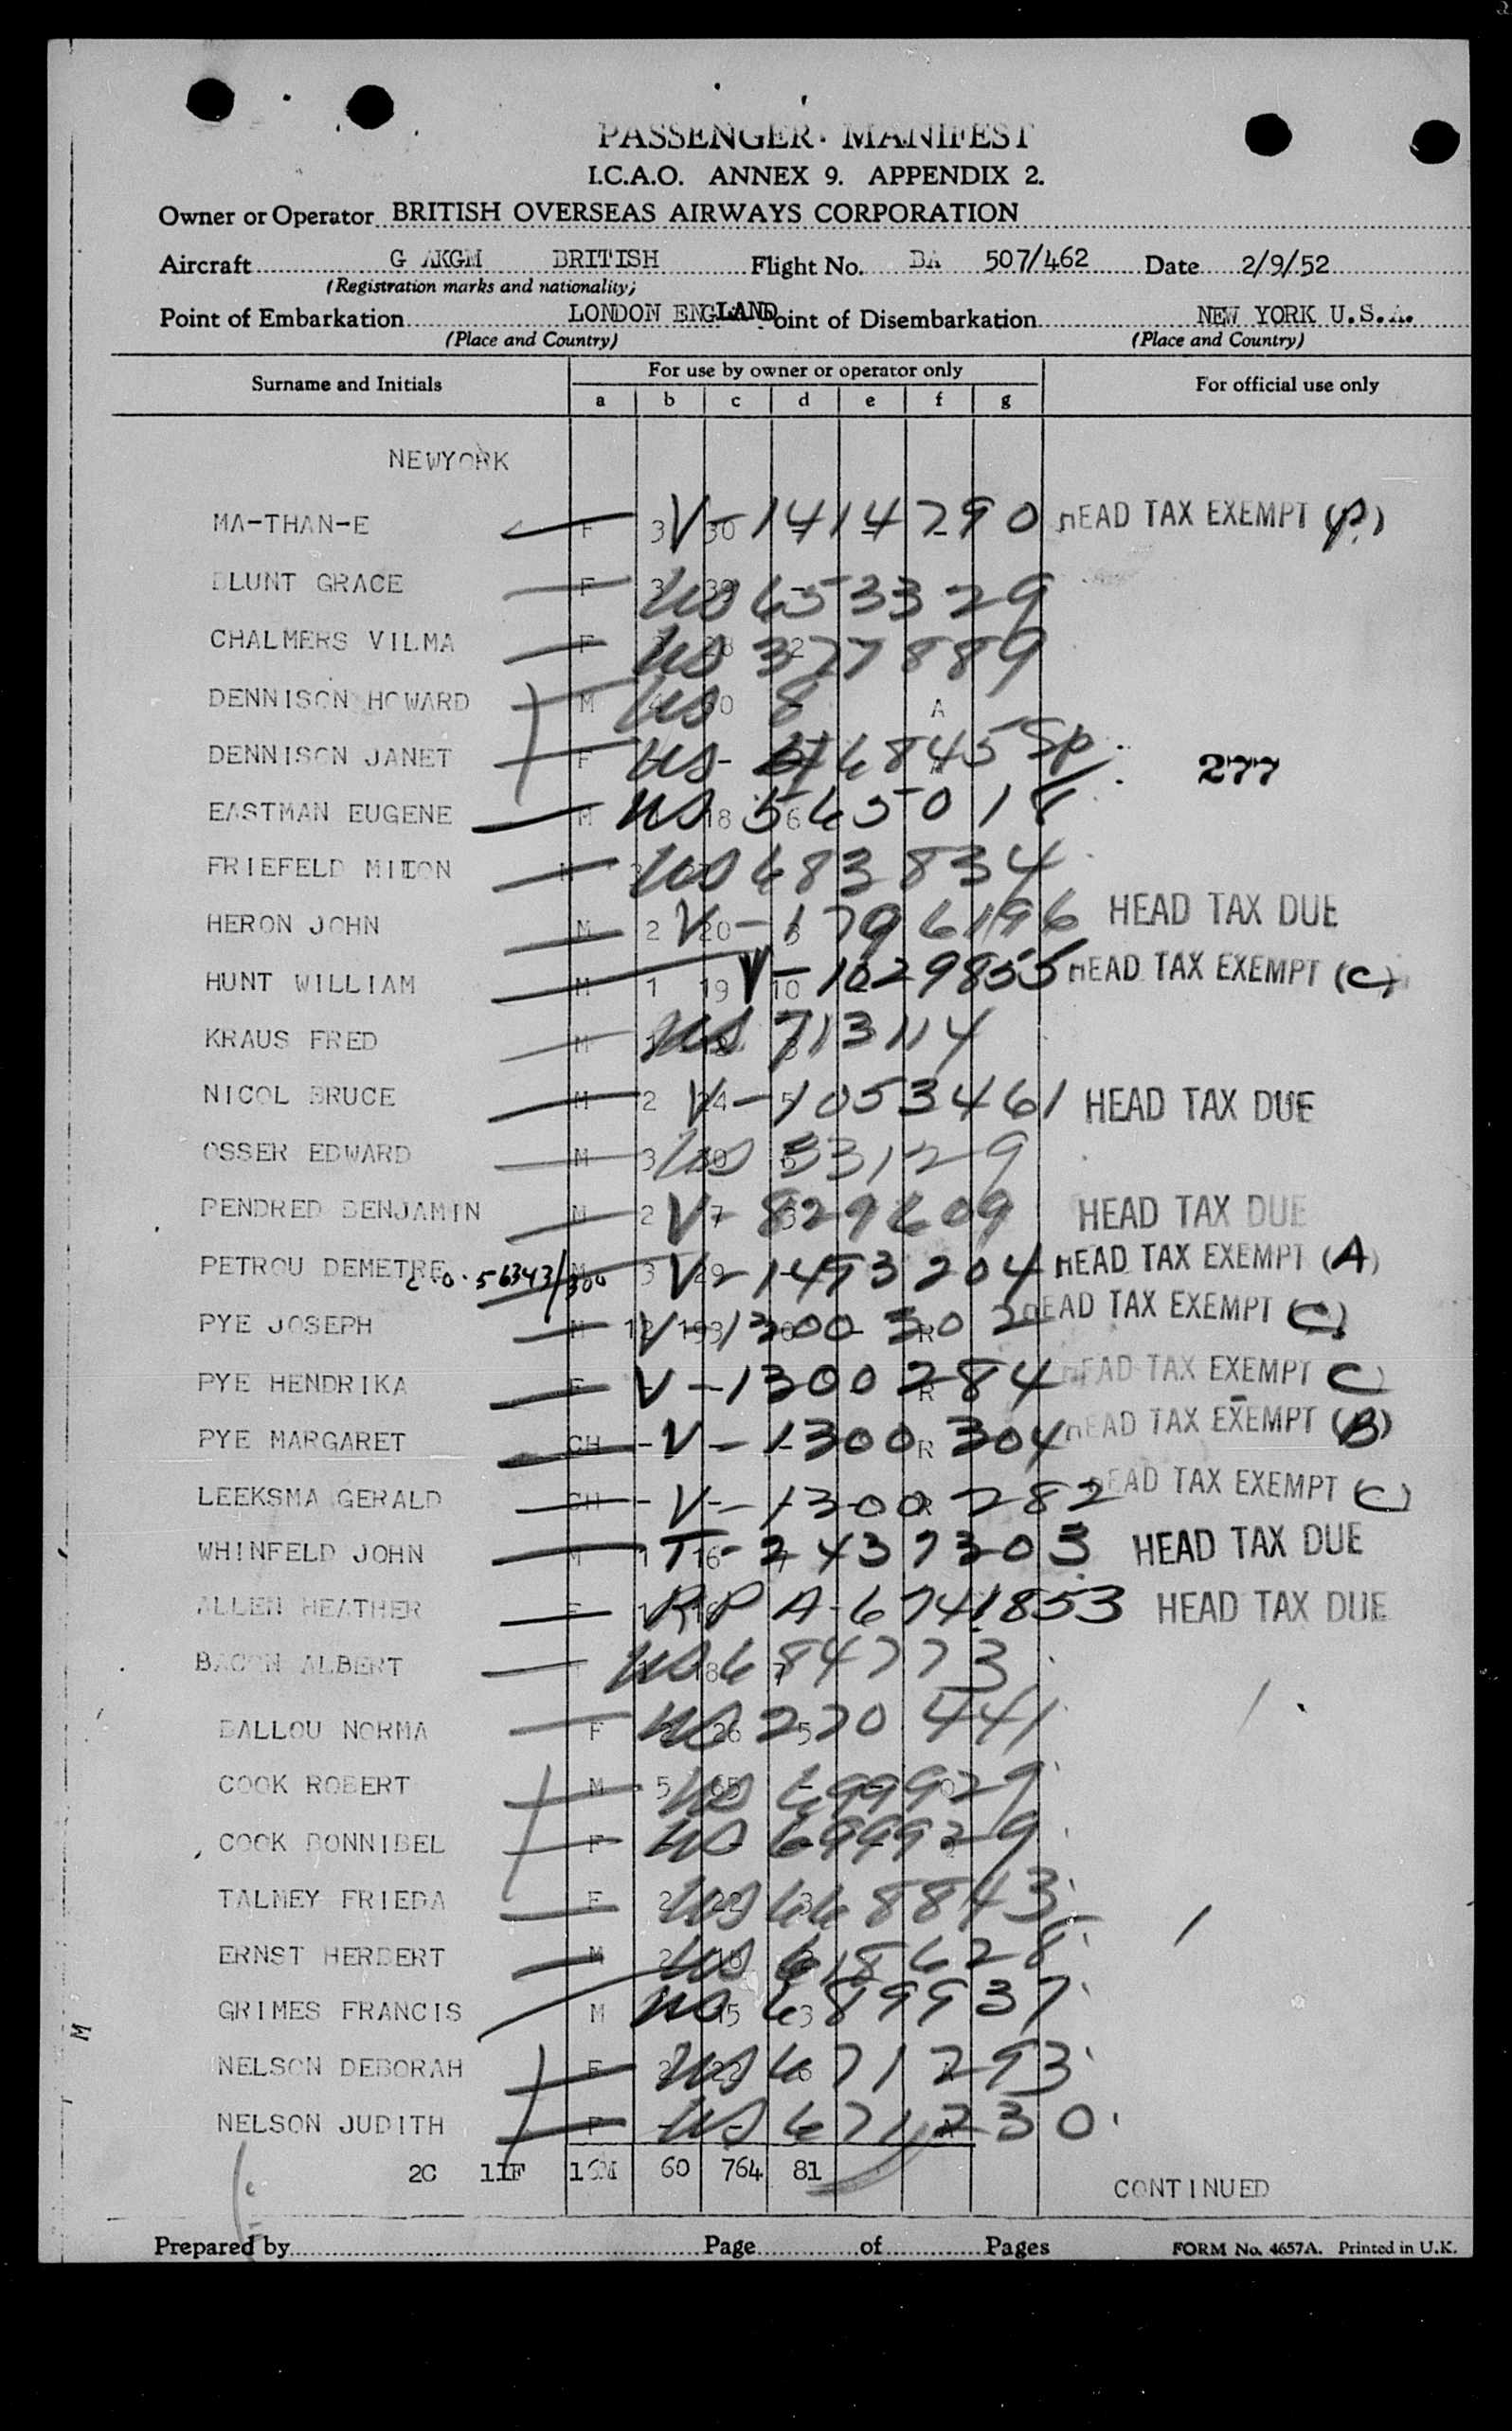 PASSENGER MANIFEST
I.C.A.O. ANNEX 9. APPENDIX 2.
Owner or Operator BRITISH OVERSEAS AIRWAYS CORPORATION
Aircraft G AKGM BRITISH Flight No. BA 507/462 Date 2/9/52
(Registration marks and nationality)
Point of Embarkation LONDON ENGLAND Point of Disembarkation NEW YORK U.S.A.
(Place and Country) (Place and Country)
Surname and Initials For use by owner or operator only For official use only
a b c d e f g
NEWYORK
MA-THAN-E F 3 30 V-1414290 HEAD TAX EXEMPT
BLUNT GRACE F US 653329
CHALMERS VILMA F US 377889
DENNISON HOWARD M US 8 A
DENNISON JANET F US 46845 Sp
277
EASTMAN EUGENE M 18 6 US 565018
FRIEFELD MILTON M US 683834
HERON JOHN M 2 20 V-1796196 HEAD TAX DUE
HUNT WILLIAM M 1 19 10 V-1029855 HEAD TAX EXEMPT (C)
KRAUS FRED M US 713114
NICOL BRUCE M 2 24 5 V-1053461 HEAD TAX DUE
OSSER EDWARD M 3 30 US 33129
PENDRED BENJAMIN M 2 7 3 V-829609 HEAD TAX DUE
PETROU DEMETRE M 3 29 V-1493204 HEAD TAX EXEMPT (A)
56343/300
PYE JOSEPH M 12 193 R V-1300302 HEAD TAX EXEMPT (C)
PYE HENDRIKA F R V-1300284 HEAD TAX EXEMPT C
PYE MARGARET CH - - - R V-1300304 HEAD TAX EXEMPT (B)
LEEKSMA GERALD CH - - V-1300282 HEAD TAX EXEMPT (C)
WHINFELD JOHN M 1 16 T-2437303 HEAD TAX DUE
ALLEN HEATHER F RP A-6741853 HEAD TAX DUE
BACON ALBERT 18 7 US 684773
BALLOU NORMA F 26 5 US 220441
COOK ROBERT M 5 65 US 699929
COOK BONNIBEL F US 699929
TALMEY FRIEDA F 2 22 3 US 668843
ERNST HERBERT M 2 US 618628
GRIMES FRANCIS M 15 3 US 689937
NELSON DEBORAH F 2 22 6 US 671293
NELSON JUDITH F US 671230
2C 11F 16M 60 764 81
CONTINUED
M
Prepared by Page of Pages FORM No. 4657A. Printed in U.K.